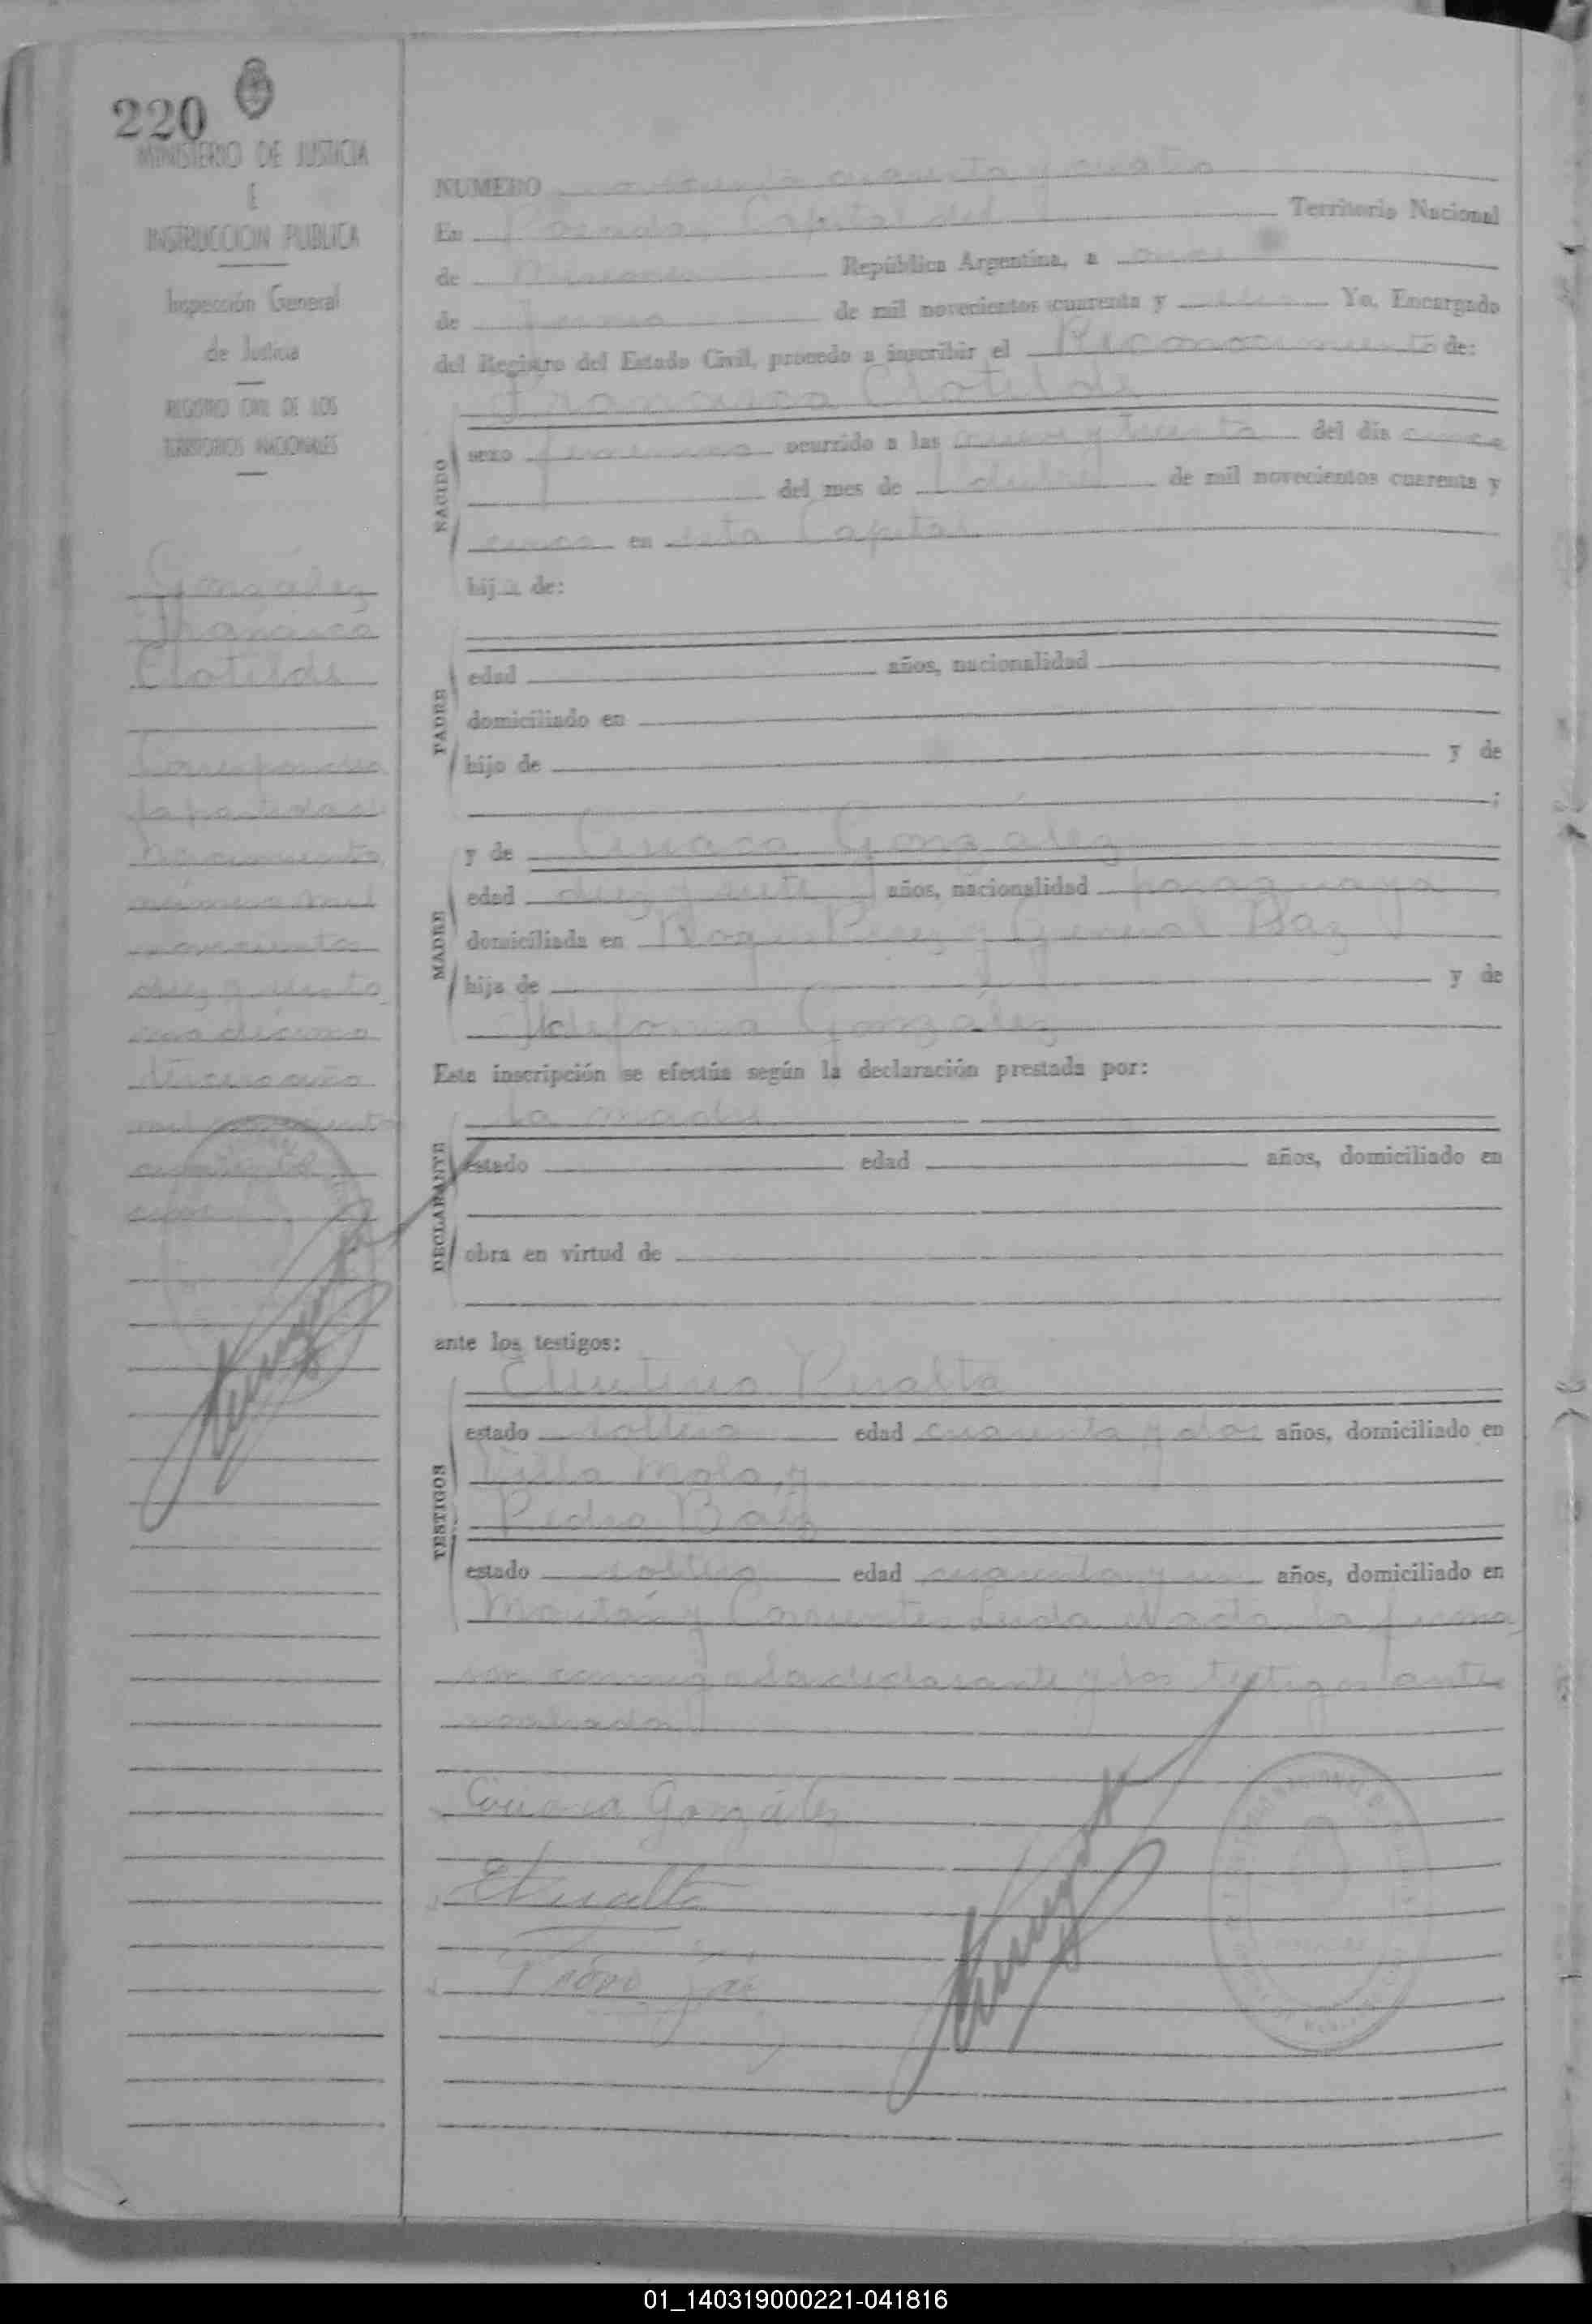 220
MINISTERIO DE JUSTICIA
E
INSTRUCCION PUBLICA
Inspección General
de Justicia
REGISTRO CIVIL DE LOS
TERRITORIOS NACIONALES
González
Francisca
Clotilde
Corresponde a
la partida de
Nacimiento
número mil
novecientos
diez y
décimo
tercero año
mil novecientos
cuarenta
NUMERO novecientos cuarenta y cuatro
En Posadas, Capital del Territorio Nacional
de Misiones República Argentina, a once
de de mil novecientos cuarenta y Yo, Encargado
del Registro del Estado Civil, procedo a inscribir el Reconocimiento de:
Francisca Clotilde
NACIDO
sexo femenino ocurrido a las y treinta del día
del mes de de mil novecientos cuarenta y
cinco en esta Capital
hija de:
PADRE
edad años, nacionalidad
domiciliado en
hijo de y de
;
MADRE
y de Ciriaca González
edad diez y siete años, nacionalidad paraguaya
domiciliada en Roque Pérez y General Paz
hija de y de
Ildefonsa González
Esta inscripción se efectúa según la declaración prestada por:
DECLARANTE
la madre
estado edad años, domiciliado en
obra en virtud de
ante los testigos:
TESTIGOS
Peralta
estado soltero edad cuarenta y dos años, domiciliado en
Villa Mola, y
Pedro Baez
estado soltero edad cuarenta y un años, domiciliado en
y Corrientes Leida el acta la firma
con conmigo la declarante y los testigos antes
nombrados
Ciriaca González
E Peralta
01_140319000221-041816